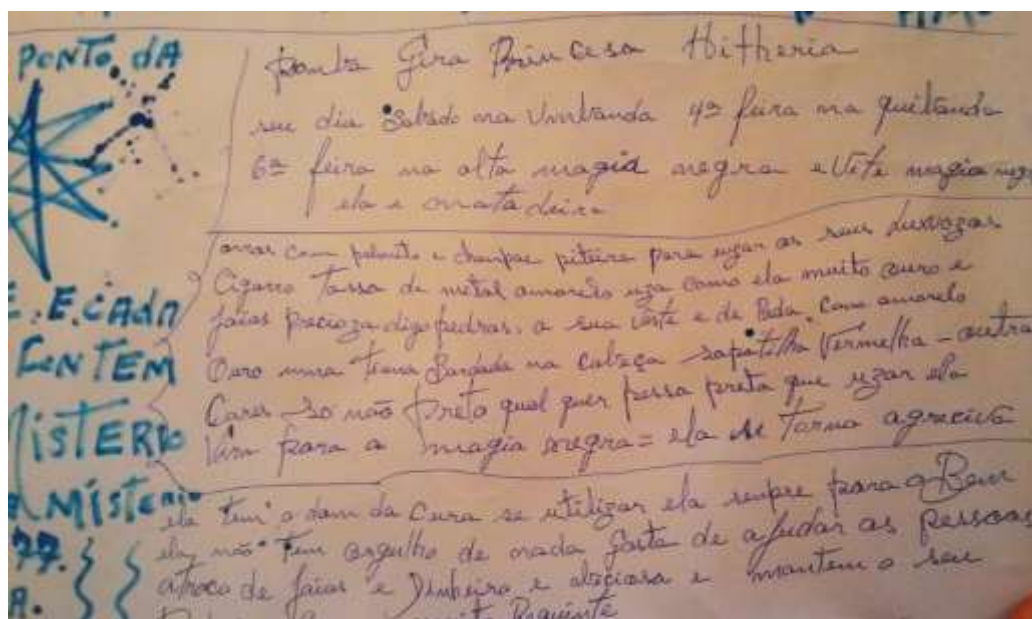 PONTO dA
E. E. CAdA
CONTEM
MISTERIO
MÍSTERIO
77.
A.
Pomba Gira Princesa Hitheria
seu dia Sabado na Umbanda 4ª feira na quibanda
6ª feira na alta magia negra e Vete magia neg
ela e matadeira
com palmito e champae piteira para uzar os seus luxuozos
Cigarro Tassa de metal amarelo uza como ela muito ouro e
joias precioza digo pedras. a sua veste e de Seda. Cana amarelo
Ouro uma Tiara Bordada na Cabeça - sapatilha Vermelha - outra
Cores so não Preto qual quer pessa preta que uzar ela
Vira para a magia negra = ela se Torna agreciva
ela Tem o dom da Cura se utilizar ela senpre para o Bem
ela não Tem orgulho de nada gosta de ajudar as pessoas
atroco de joias e Dinheiro e e mantem o seu
muito Requinte